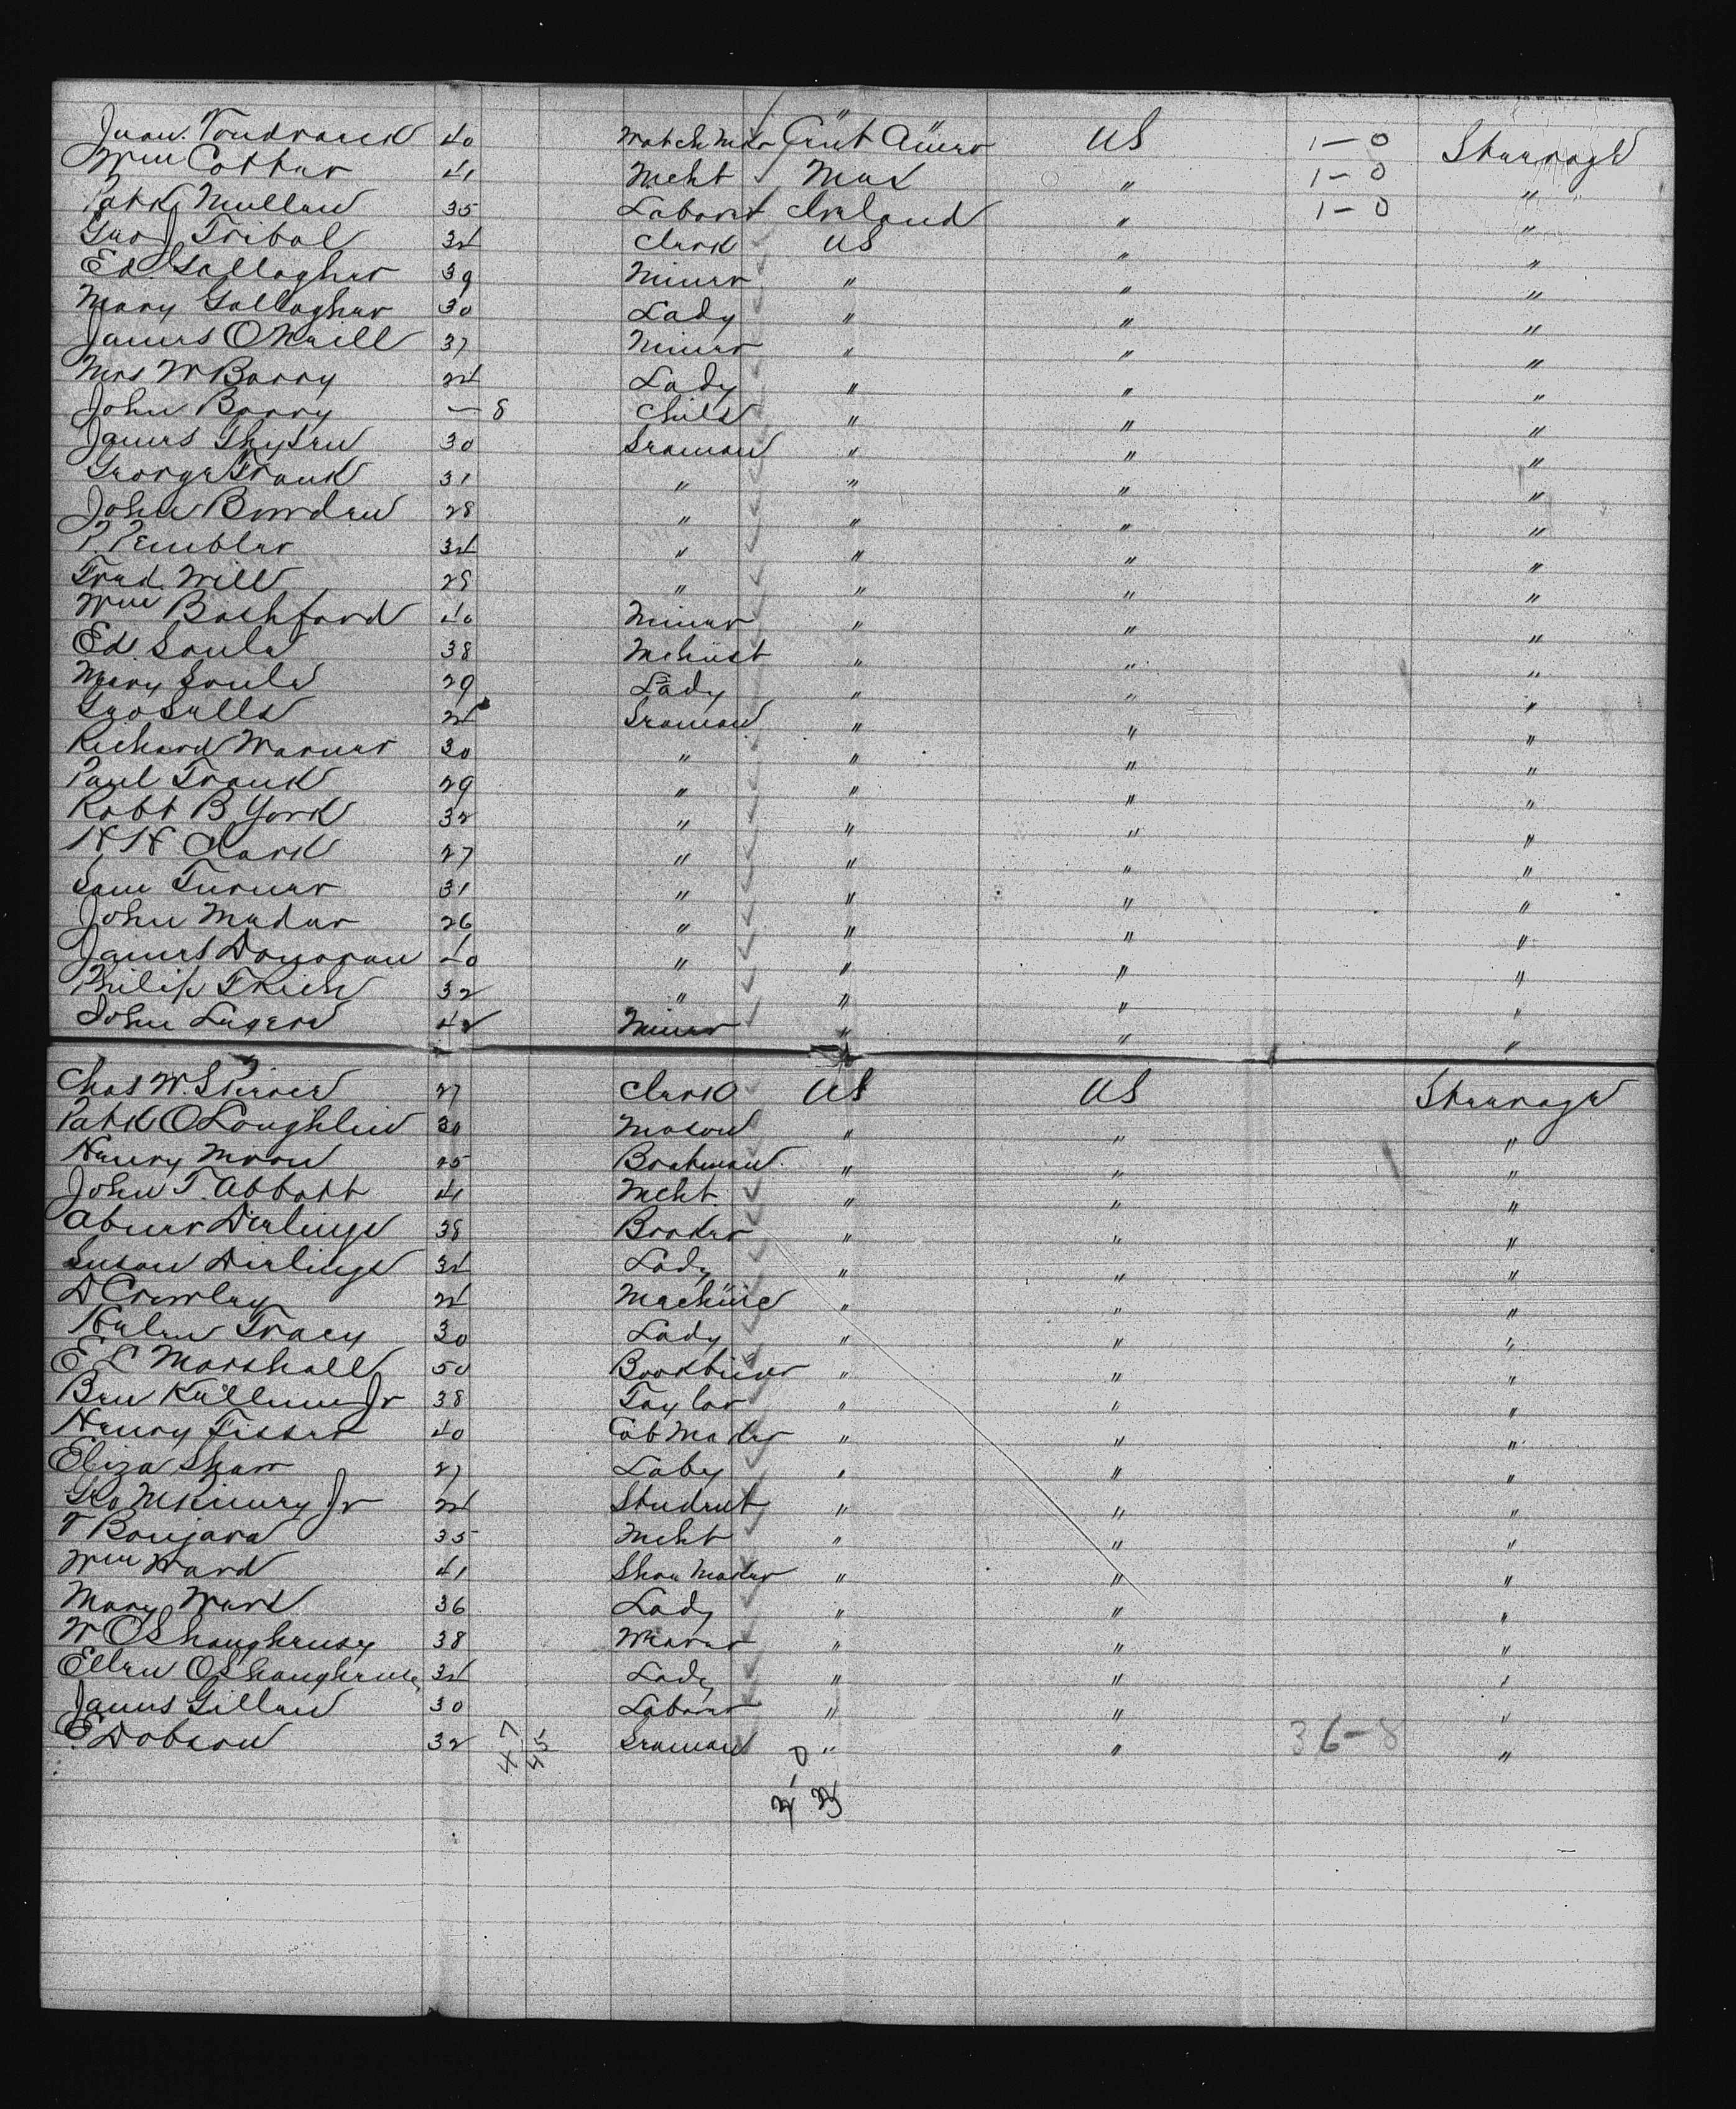 Juan Vondrasek 40 Watch Mkr Cent Amer US 1-0 Steerage
Wm Cotter 41 Mcht Mex " 1-0 "
Patk Mullen 35 Laborer Ireland " 1-0 "
Geo J Tribol 34 Clerk US " "
Ed. Gallagher 39 Miner " " "
Mary Gallagher 30 Lady " " "
James O Neill 37 Miner " " "
Mrs W Barry 24 Lady " " "
John Barry — 8 Child " " "
James 30 Seaman " " "
George Frank 31 " " " "
John Bowden 28 " " " "
P. Pembler 34 " " " "
Fred. Will 28 " " " "
Wm Bashford 40 Miner " " "
Ed. Soule 38 Mchinst " " "
Mary Soule 29 Lady " " "
Geo Sells 24 Seaman " " "
Richard Warner 30 " " " "
Paul Frank 29 " " " "
Robt B York 32 " " " "
H H Clark 27 " " " "
Sam Turner 31 " " " "
John Mader 26 " " " "
James Donovan 40 " " " "
Philip 32 " " " "
John 42 Miner " " "
Chas W. 27 Clerk US US Steerage
Patk O Loughlin 30 Mason " " "
Henry Moore 25 Boatman " " "
John T. Abbott 41 Mcht " " "
Abner Dirlinge 38 Broker " " "
Susan Dirlinge 34 Lady " " "
D Crowley 24 Machine " " "
Helen Tracy 30 Lady " " "
E L Marshall 50 Bookbiner " " "
Ben Kullum Jr 38 Taylor " " "
Henry Fisser 40 Cab Maker " " "
Eliza Shaw 27 Laby " " "
Geo McKinney Jr 24 Student " " "
T Bonjara 35 Mcht " " "
Wm Ward 41 Shoe Maker " " "
Mary Ward 36 Lady " " "
W O Shaughnesy 38 Weaver " " "
Ellen O Shaughnesy 34 Lady " " "
James Gillen 30 Laborer " " "
E. Dobson 32 47 45 Seaman " " 36-8 "